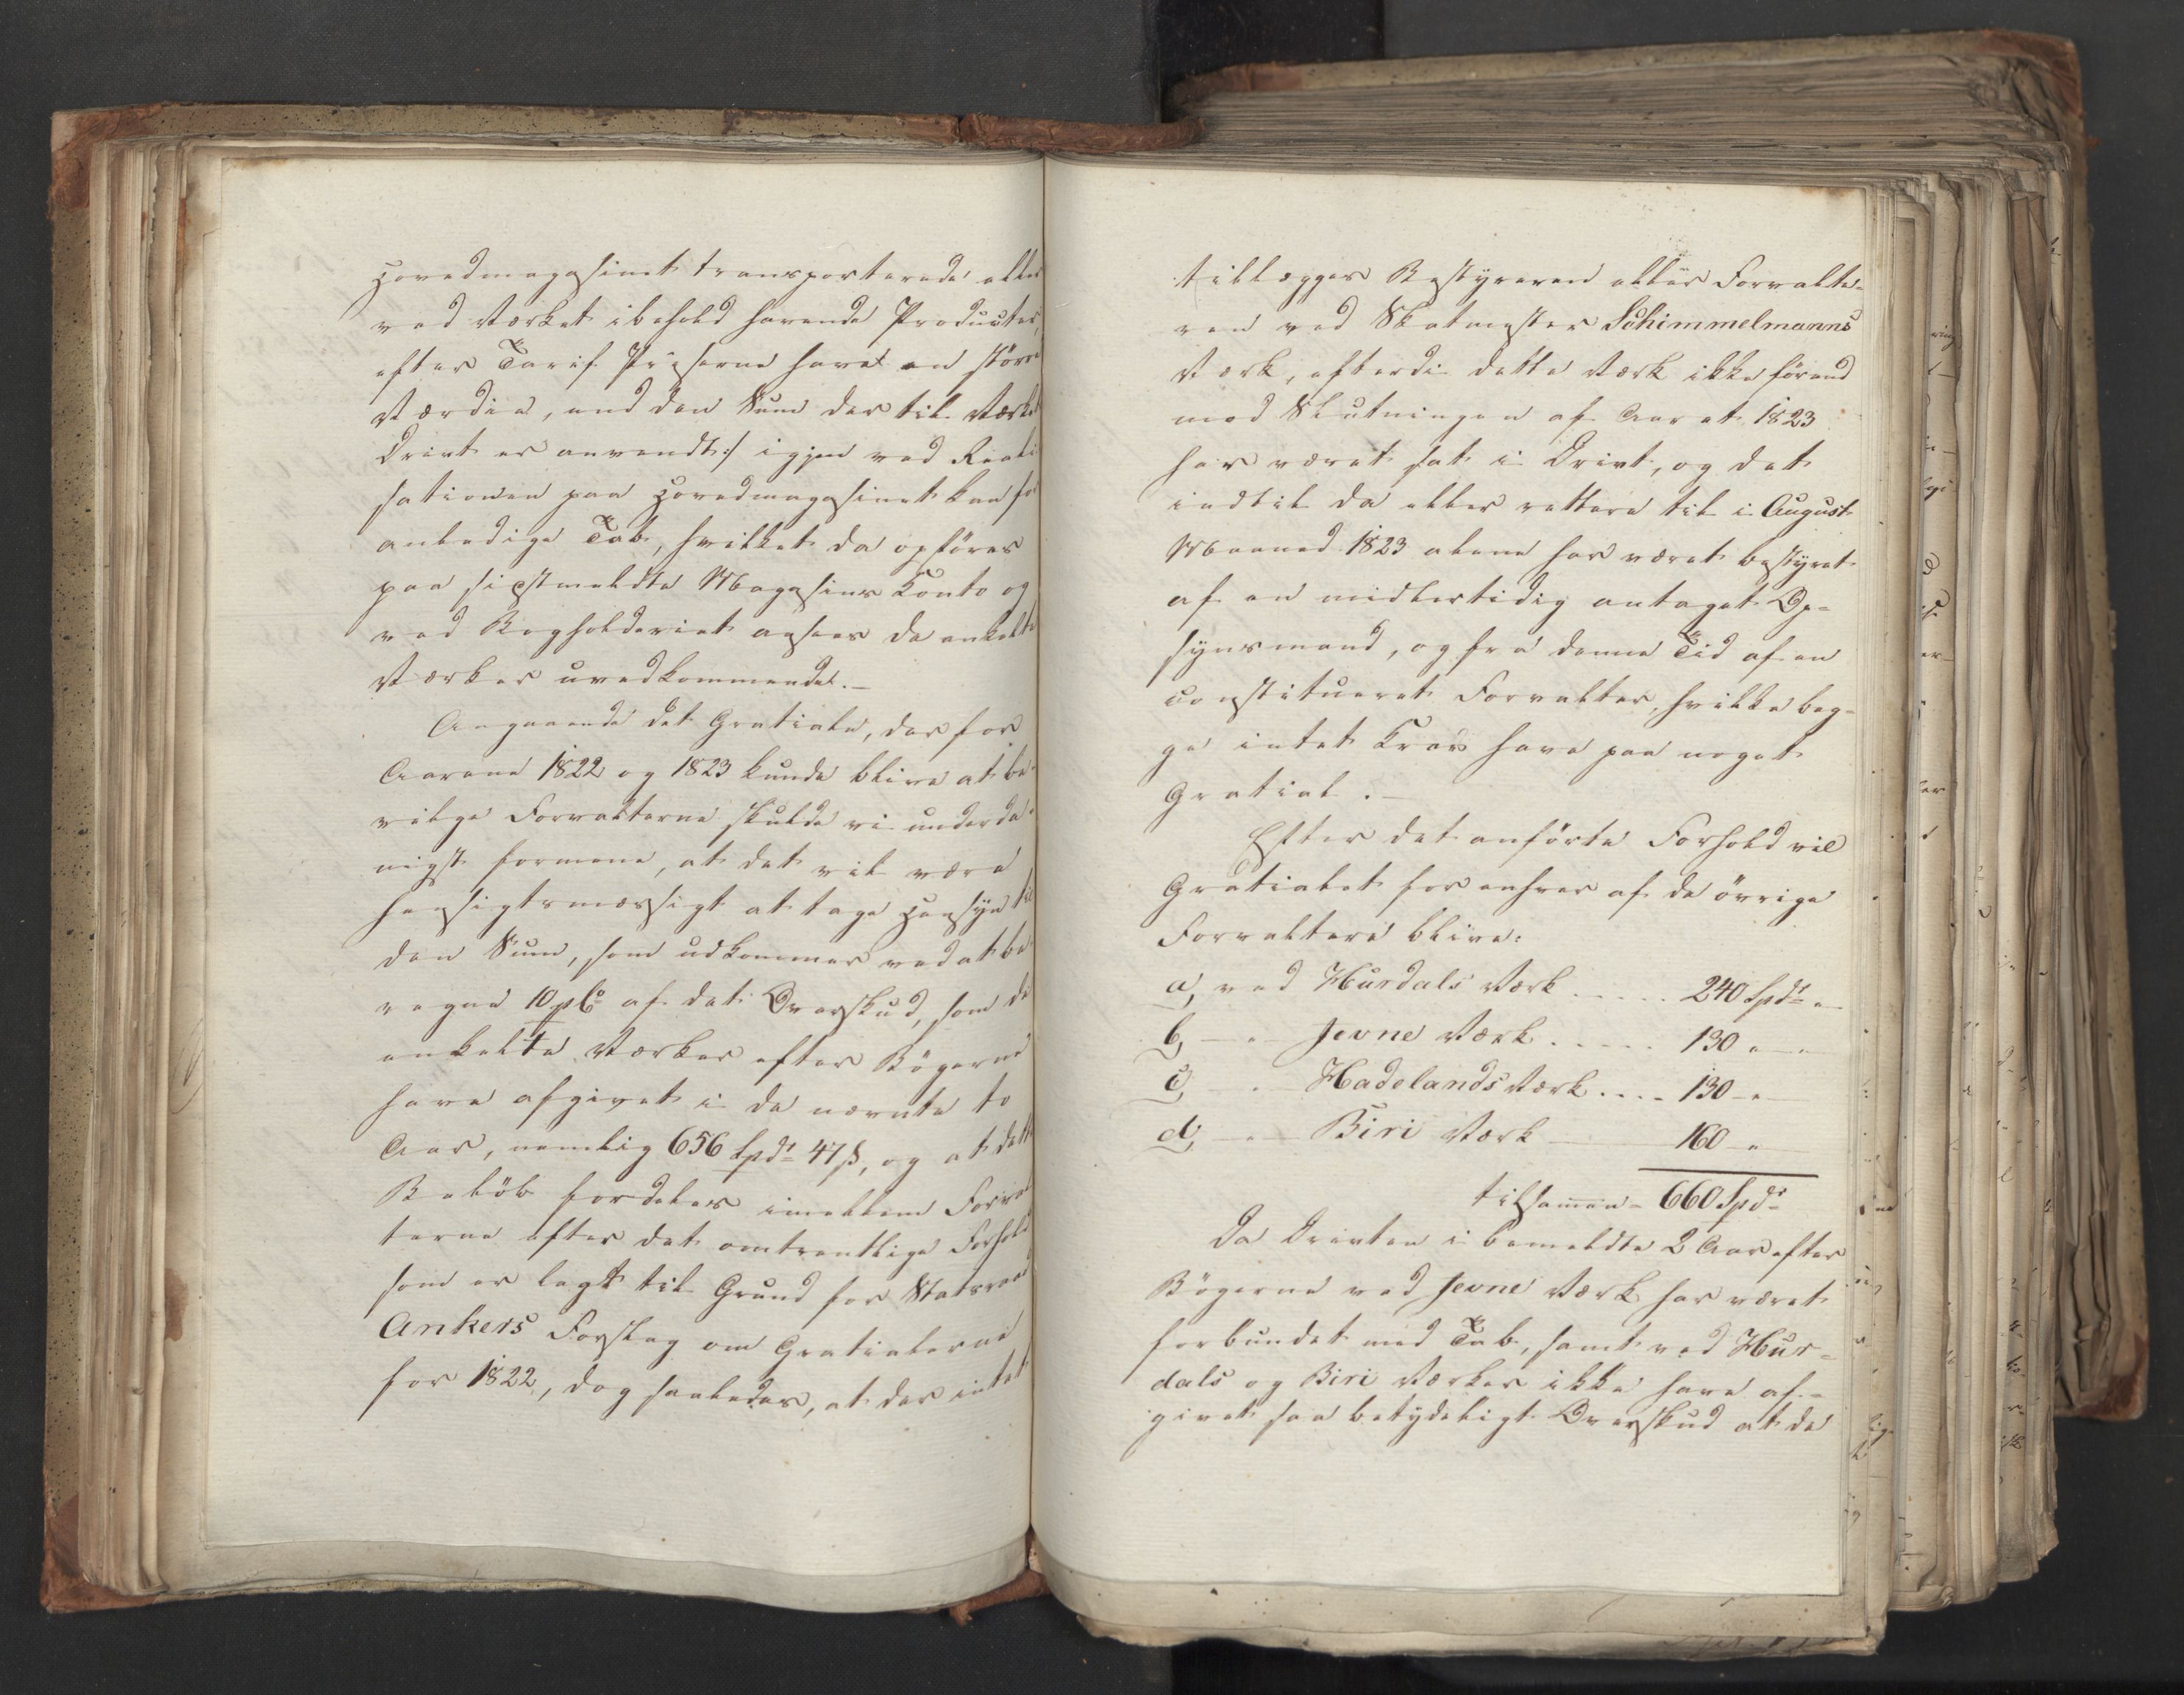 Hovedmagasinet transporterede eller
ved Værket ibehold havende Producter,
efter Tarif Priserne have en större
Værdie, end den Sum der til Værkets
Drivt er anvendt :/ igjen ved Reali
sationen paa Hovedmagasinet kan for
anledige Tab, hvilket da opföres
paa sidstmeldte Magasins Conto og
ved Bogholderiet ansees de enkelte
Værker uvedkommende. —
Angaaende det Gratiale, der for
Aarene 1822 og 1823 kunde blive at be-
vilge Forvalterne skulde vi underda-
nigst formene, at det vil være
hensigtsmæssigt at tage Hensyn til
den Sum, som udkommer ved at be-
regne 10 pCt af det Overskud, som de
enkelte Værker efter Bögerne
have afgivet i de nævnte to
Aar, nemlig 656 Spdr 47 ß, og at dette
Belöb fordeles imellem Forval
terne efter det omtrentlige Forhold
som er lagt til Grund for Statsraad
Ankers Forslag om Gratialerne
for 1822, dog saaledes, at der intet
tillægges Bestyreren eller Forvalte-
ren ved Skatmester Schimmelmanns
Værk, efterdi dette Værk ikke förend
mod Slutningen af Aaret 1823
har været sat i Drivt, og det
indtil da eller rettere til i August
Maaned 1823 alene har været bestyret
af en midlertidig antaget Op-
synsmand, og fra denne Tid af en
constitueret Forvalter, hvilke beg-
ge intet Krav have paa noget
Gratial. —
Efter det anförte Forhold vil
Gratialet for enhver af de övrige
Forvaltere blive:
a, ved Hurdals Værk ..... 240 Spdr "
b, — " — Jevne Værk ..... 130 " "
c, — " — Hadelands Værk .... 130 - "
d, — " — Biri Værk — 160 - "
tilsammen - 660 Spdr
Da Drivten i bemeldte 2 Aar efter
Bögerne ved Jevne Værk har været
forbundet med Tab, samt ved Hur-
dals og Biri Værker ikke have af-
givet saa betydeligt Overskud at de